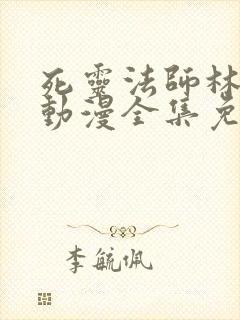 死靈法師林
動漫全集免
李毓佩